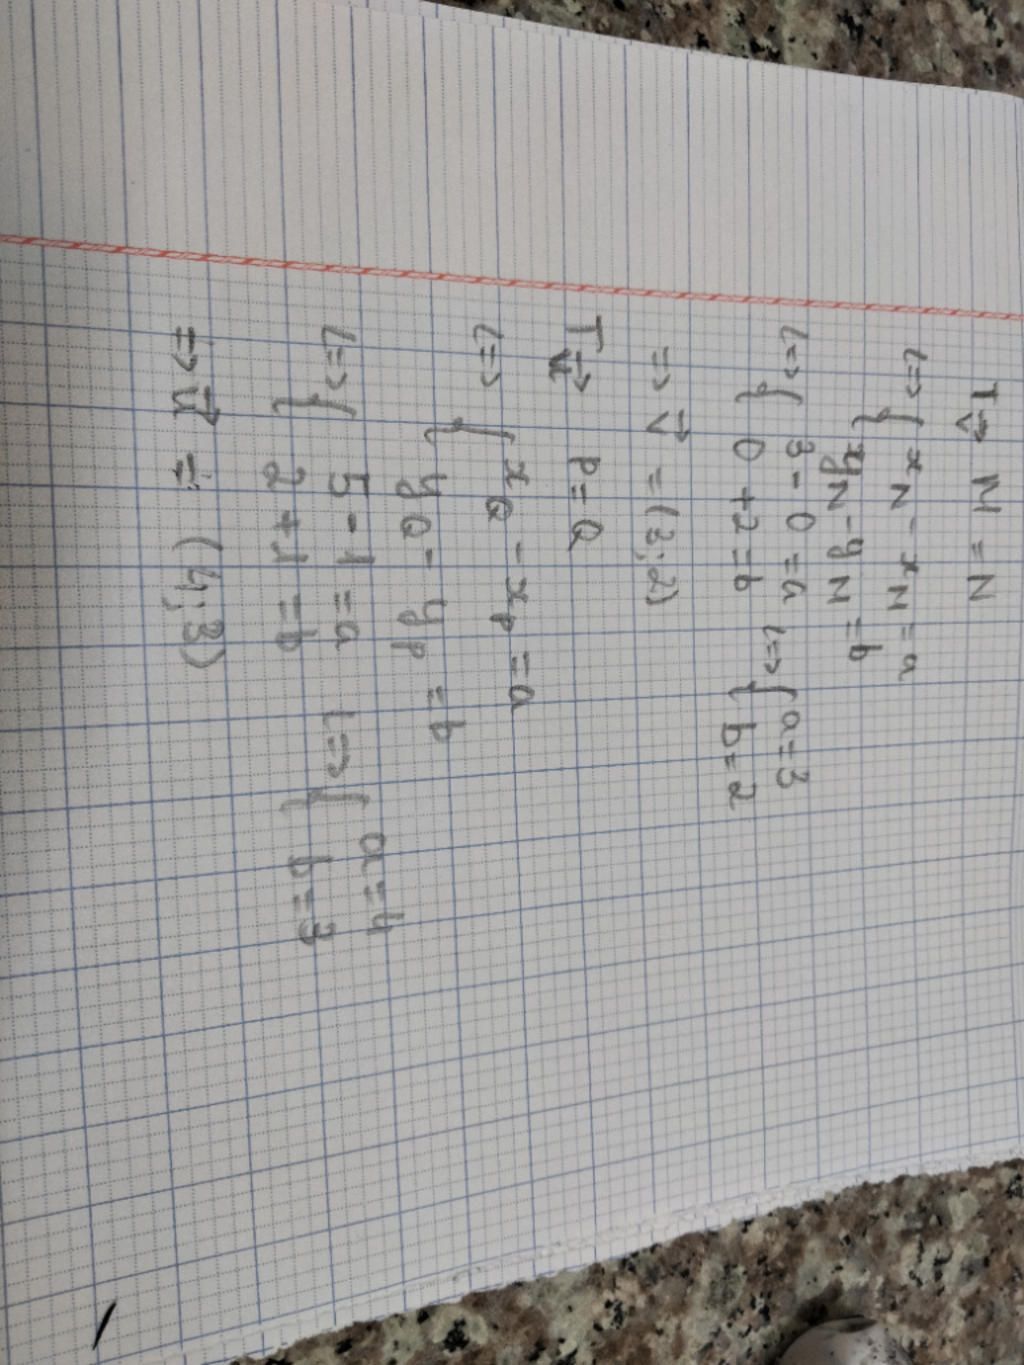 T v⃗ M = N
<=> { x N - x M = a
y N - y M = b
<=> { 3 - 0 = a <=> { a = 3
0 + 2 = b b = 2
=> v⃗ = (3;2)
T u⃗ P = Q
<=> { x Q - x P = a
y Q - y P = b
<=> { 5 - 1 = a <=> { a = 4
2 + 1 = b b = 3
=> u⃗ = (4;3)